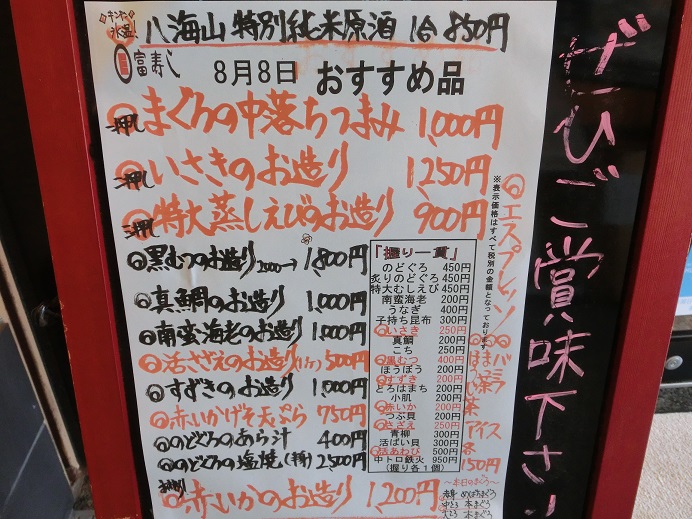 キンキンに
氷温!
八海山 特別純米原酒 1合 850円
富寿し
8月8日 おすすめ品
押し まぐろの中落ちつまみ 1,000円
二押し いさきのお造り 1,250円
三押し 特大蒸しえびのお造り 900円
黒むつのお造り 2,000→1,800円
真鯛のお造り 1,000円
南蛮海老のお造り 1,000円
活さざえのお造り(1ケ) 500円
すずきのお造り 1,000円
赤いかげそ天ぷら 750円
のどぐろのあら汁 400円
のどぐろの塩焼(特) 2,500円
赤いかのお造り 1,200円
「握り一貫」
のどぐろ 450円
炙りのどぐろ 450円
特大むしえび 450円
南蛮海老 200円
うなぎ 400円
子持ち昆布 300円
いさき 250円
真鯛 200円
こち 250円
黒むつ 400円
ほうぼう 200円
すずき 200円
とろはまち 200円
小肌 200円
赤いか 200円
つぶ貝 200円
さざえ 250円
青柳 300円
活ばい貝 300円
活あわび 500円
中トロ鉄火 950円
(握り各1個)
※表示価格はすべて税別の金額となっております
エスプレッソ
アイス
150円
〜本日のまぐろ〜
赤身 めばちまぐろ
中とろ 本まぐろ
大とろ 本まぐろ
ぜひご賞味下さい